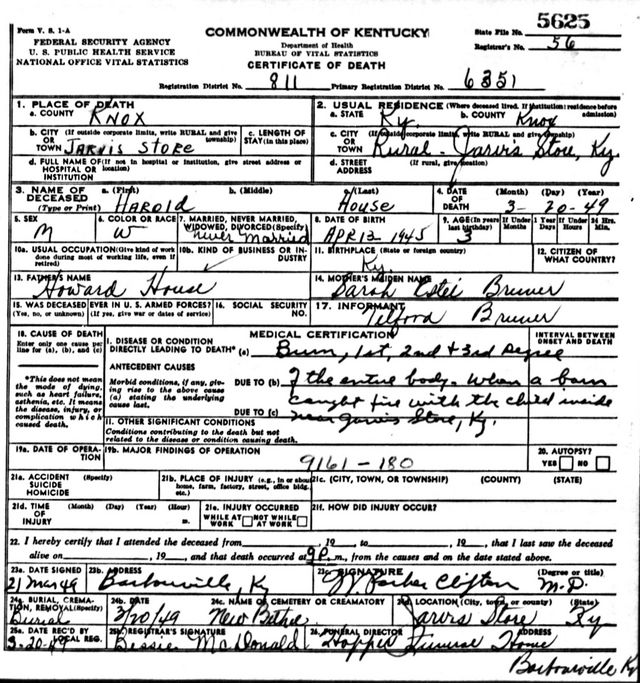 Form V. S. 1-A
FEDERAL SECURITY AGENCY
U. S. PUBLIC HEALTH SERVICE
NATIONAL OFFICE VITAL STATISTICS
COMMONWEALTH OF KENTUCKY
Department of Health
BUREAU OF VITAL STATISTICS
CERTIFICATE OF DEATH
State File No. 5625
Registrar's No. 56
Registration District No. 811 Primary Registration District No. 6351
1. PLACE OF DEATH
a. COUNTY KNOX
2. USUAL RESIDENCE (Where deceased lived. If institution: residence before admission)
a. STATE Ky. b. COUNTY Knox
b. CITY (If outside corporate limits, write RURAL and give township)
OR
TOWN JARVIS STORE
c. LENGTH OF STAY (in this place)
c. CITY (If outside corporate limits, write RURAL and give township)
OR
TOWN Rural - Jarvis Store, Ky.
d. FULL NAME OF (If not in hospital or institution, give street address or location)
HOSPITAL OR
INSTITUTION
d. STREET (If rural, give location)
ADDRESS
3. NAME OF DECEASED (Type or Print)
a. (First) HAROLD
b. (Middle)
c. (Last) House
4. DATE OF DEATH (Month) (Day) (Year)
3-20-49
5. SEX M
6. COLOR OR RACE W
7. MARRIED, NEVER MARRIED, WIDOWED, DIVORCED (Specify)
Never Married
8. DATE OF BIRTH
APR 12 1945
9. AGE (In years last birthday) 3
If Under 1 Year Months Days
If Under 24 Hrs. Hours Min.
10a. USUAL OCCUPATION (Give kind of work done during most of working life, even if retired)
10b. KIND OF BUSINESS OR INDUSTRY
11. BIRTHPLACE (State or foreign country)
Ky.
12. CITIZEN OF WHAT COUNTRY?
13. FATHER'S NAME
Howard House
14. MOTHER'S MAIDEN NAME
Sarah Bruner
15. WAS DECEASED EVER IN U. S. ARMED FORCES?
(Yes, no, or unknown) (If yes, give war or dates of service)
16. SOCIAL SECURITY NO.
17. INFORMANT
Telford Bruner
18. CAUSE OF DEATH
Enter only one cause per line for (a), (b), and (c)
*This does not mean the mode of dying, such as heart failure, asthenia, etc. It means the disease, injury, or complication which caused death.
MEDICAL CERTIFICATION
INTERVAL BETWEEN ONSET AND DEATH
I. DISEASE OR CONDITION
DIRECTLY LEADING TO DEATH* (a) Burn, 1st, 2nd + 3rd Degree
ANTECEDENT CAUSES
Morbid conditions, if any, giving rise to the above cause (a) stating the underlying cause last.
DUE TO (b) of the entire body. When a barn
caught fire with the child inside
DUE TO (c) near Jarvis Store, Ky.
II. OTHER SIGNIFICANT CONDITIONS
Conditions contributing to the death but not related to the disease or condition causing death.
19a. DATE OF OPERATION
19b. MAJOR FINDINGS OF OPERATION
9161-180
20. AUTOPSY?
YES NO
21a. ACCIDENT SUICIDE HOMICIDE (Specify)
21b. PLACE OF INJURY (e.g., in or about home, farm, factory, street, office bldg. etc.)
21c. (CITY, TOWN, OR TOWNSHIP) (COUNTY) (STATE)
21d. TIME OF INJURY (Month) (Day) (Year) (Hour)
m.
21e. INJURY OCCURRED
WHILE AT WORK NOT WHILE AT WORK
21f. HOW DID INJURY OCCUR?
22. I hereby certify that I attended the deceased from , 19 to , 19 , that I last saw the deceased
alive on , 19 , and that death occurred at 9P. m., from the causes and on the date stated above.
23a. DATE SIGNED
21 Mar 49
23b. ADDRESS
Barbourville, Ky
23c. SIGNATURE (Degree or title)
Parker Clifton M.D.
24a. BURIAL, CREMATION, REMOVAL (Specify)
Burial
24b. DATE
3/20/49
24c. NAME OF CEMETERY OR CREAMATORY
New Bethel
24d. LOCATION (City, town, or county) (State)
Jarvis Store Ky
25a. DATE REC'D BY LOCAL REG.
3-20-49
25b. REGISTRAR'S SIGNATURE
Bessie McDonald
26. FUNERAL DIRECTOR ADDRESS
Hopper Funeral Home
Barbourville Ky